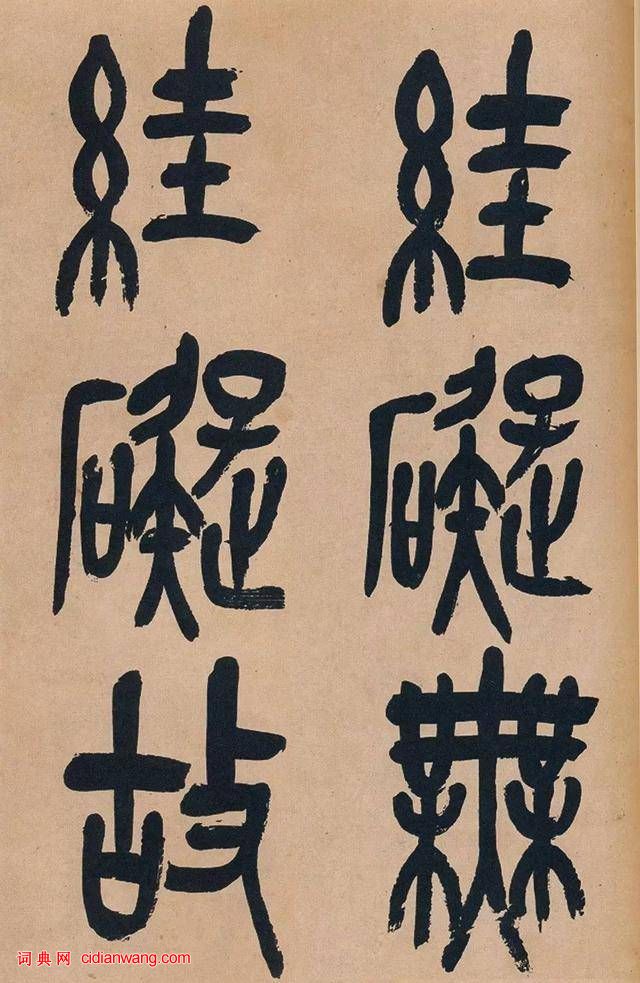 絓礙無
絓礙故
词典网 cidianwang.com